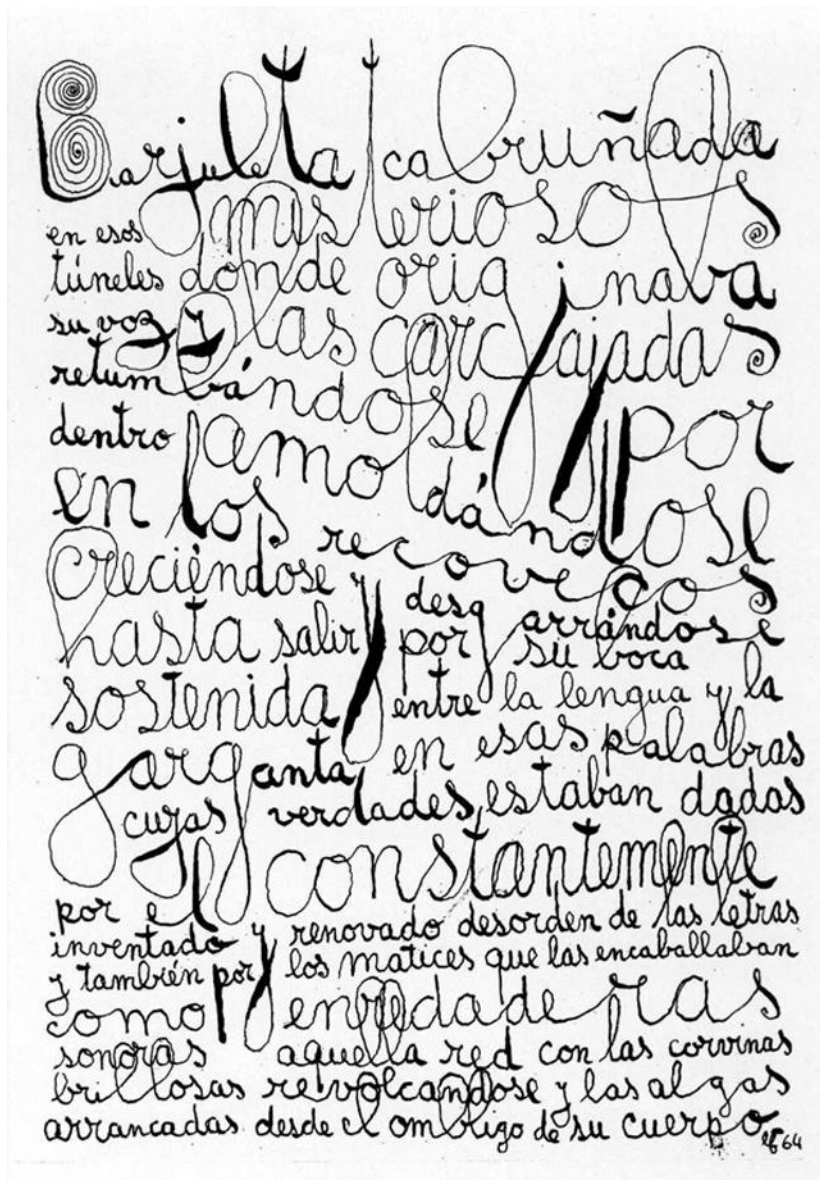 Barjuleta cabruñada
en esos misteriosos
túneles donde originava
su voz y las carcajadas
retumbándose por
dentro amoldándose
en los recovecos
creciéndose y desgarrándose
hasta salir por su boca
sostenida entre la lengua y la
garganta, en esas palabras
cuyas verdades, estaban dadas
constantemente
por el
inventado y renovado desorden de las letras
y también por los matices que las encaballaban
como enredaderas
sonoras aquella red con las corvinas
brillosas revolcandose y las algas
arrancadas desde el ombligo de su cuerpo
64